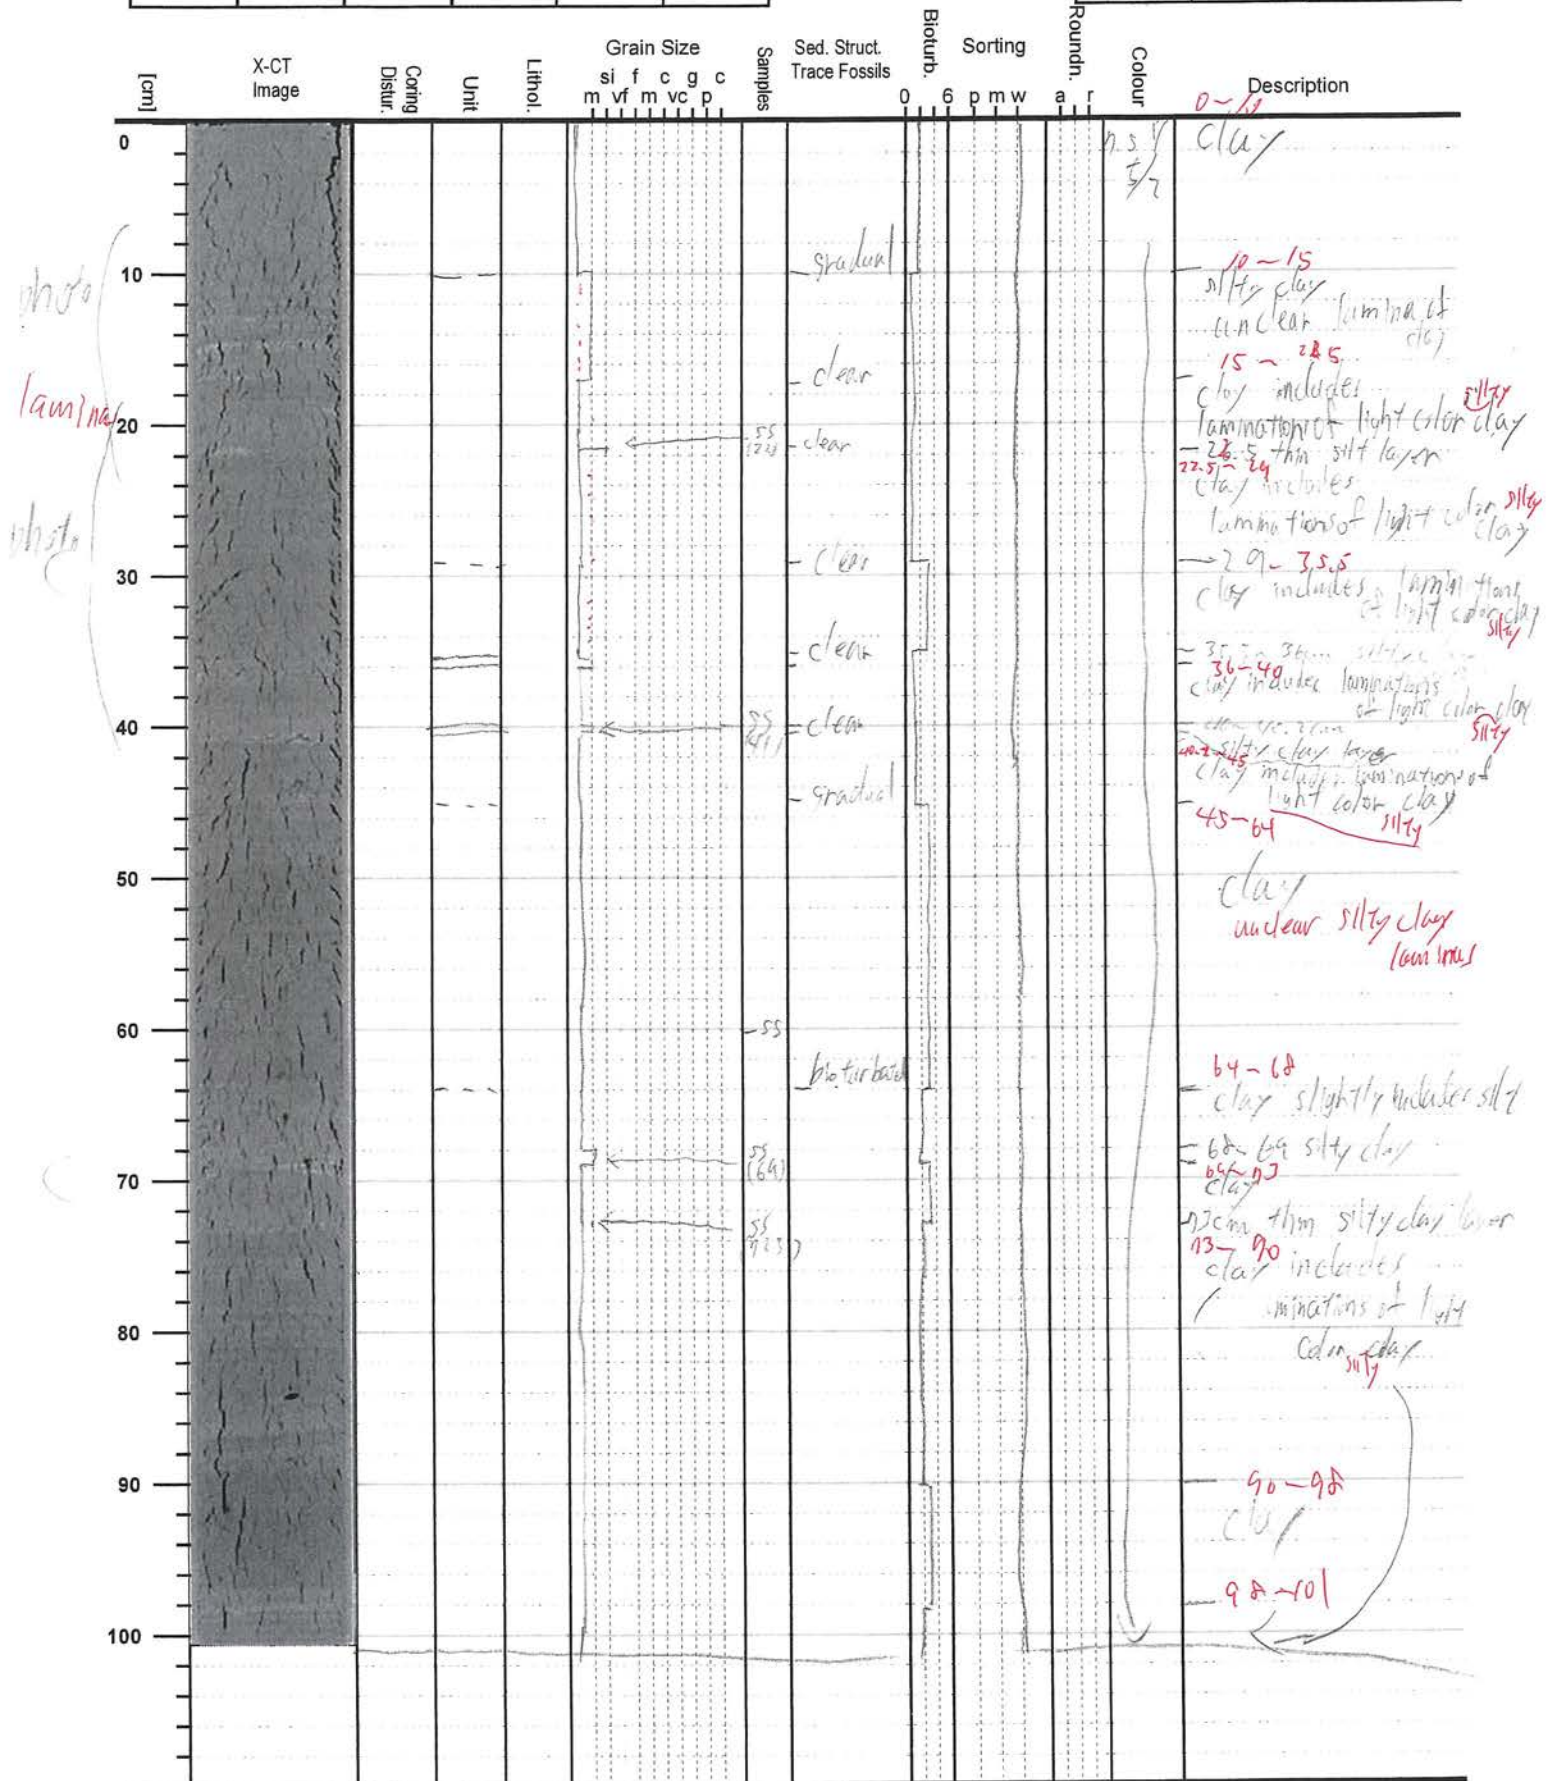 [cm]
X-CT
Image
Coring
Distur.
Unit
Lithol.
Grain Size
si f c g c
m vf m vc p
Samples
Sed. Struct.
Trace Fossils
Bioturb.
0 6
Sorting
p m w
Roundn.
a r
Colour
Description
0
10
20
30
40
50
60
70
80
90
100
photo
laminas
photo
SS
SS
SS
SS
(69)
SS
gradual
clear
clear
clear
clear
clear
gradual
bioturbated
5/2
clay
10~15
silty clay
unclear lamina of
clay
15 ~
clay includes silty
lamination of light color clay
thin silt layer
22.5~29
clay includes
laminations of light color silty
clay
29~35.5
clay includes laminations
of light color clay
silty
36~40
clay includes laminations
of light color clay
silty
silty clay layer
40.2~45
clay includes laminations of
light color clay
silty
45~64
clay
unclear silty clay
laminas
64~68
clay slightly silt
68~69 silty clay
69~73
clay
73cm thin silty clay layer
73~90
clay includes
minations of light
color clay
silty
90~98
clay
98~101